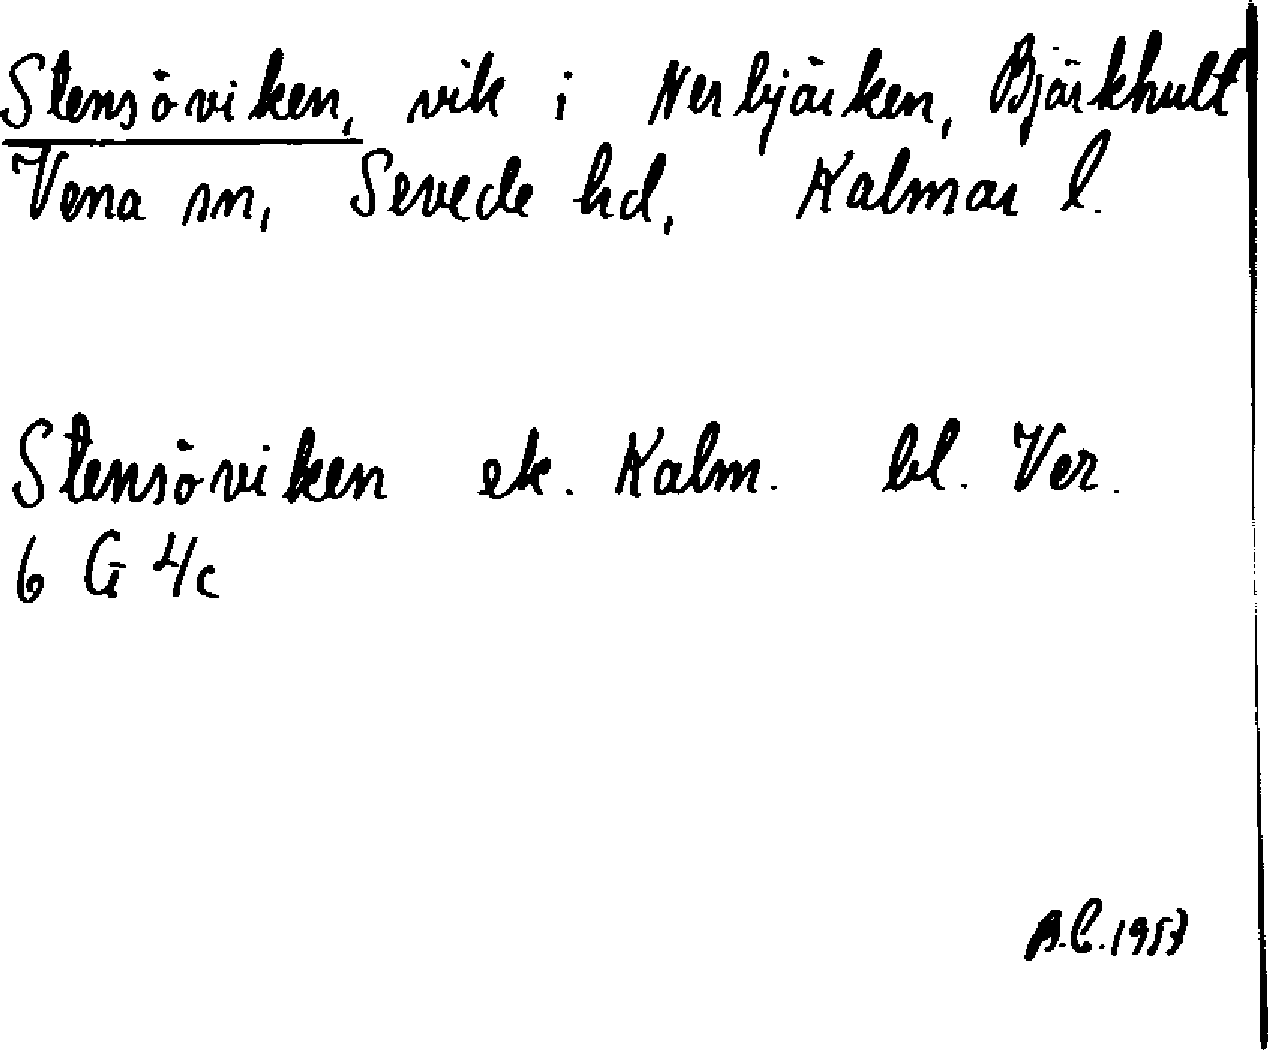 Stensöviken, vik i Nerbjärken, Bjärkhult
Vena sn, Sevede hd, Kalmar l.
Stensöviken ek. Kalm. bl. Ver.
6 G 4c
B.C. 1957